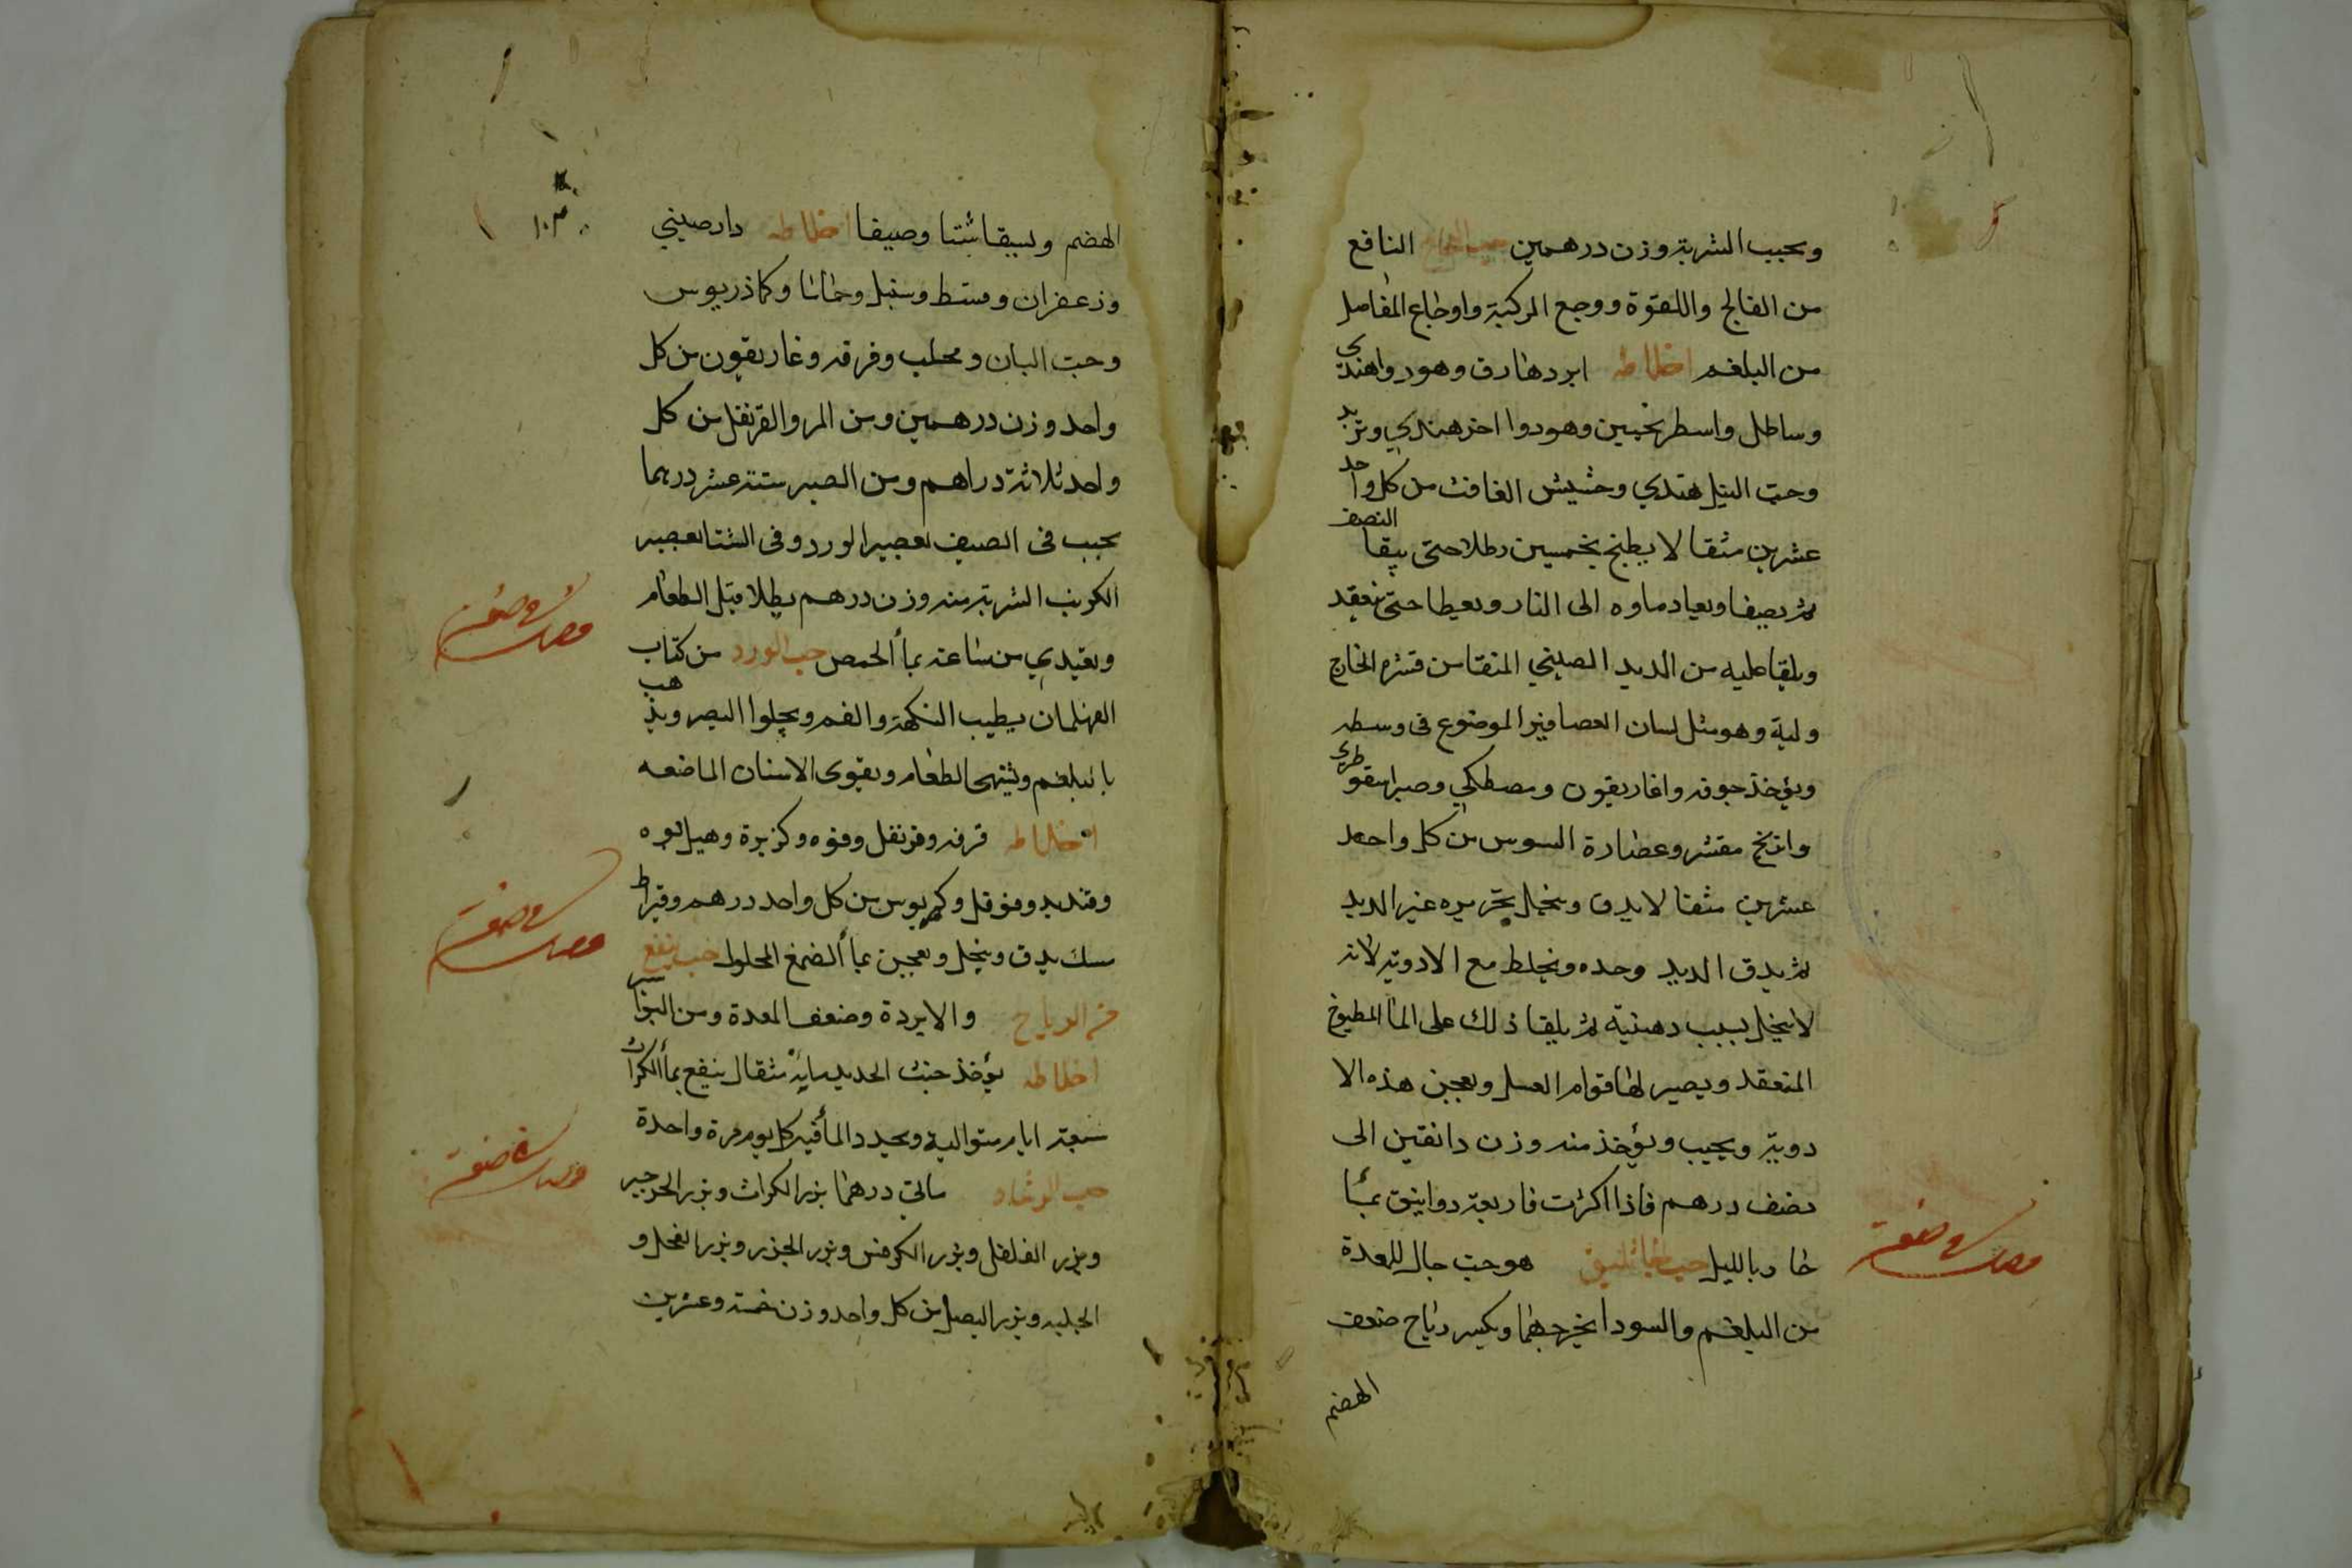 ويحبب الشربة وزن درهمين حب النافع
من الفالج واللقوة ووجع الركبة واوجاع المفاصل
من البلغم اخلاطه ابردهارق وهو دواهندي
وساطل واسطرنجبين وهو دوا اخر هندي وتربد
وحب النيل هندي وحشيش الغافت من كل واحد
عشرين مثقالا يطبخ بخمسين رطلا حتى يبقا النصف
ثم يصفا ويعاد ماوه الى النار ويعطا حتى ينعقد
ويلقا عليه من الدند الصيني المنقا من قشره الخارج
ولبه وهو مثل لسان العصافير الموضوع فى وسطه
ويؤخذ جوفه واغاريقون ومصطكي وصبر اسقوطري
واترج مقشر وعصارة السوس من كل واحد
عشرين مثقالا يدق وينخل بحريره غير الدند
ثم يدق الدند وحده ويخلط مع الادوية لانه
لا ينخل بسبب دهنيته ثم يلقا ذلك على الماء المطبوخ
المنعقد ويصير لها قوام العسل ويعجن هذه الا
دوية ويحبب ويؤخذ منه وزن دانقين الى
نصف درهم فاذا اكثرت فاربعة دوانيق بماء
حار بالليل حب هو حب جال للمعدة
من البلغم والسودا يخرجهما ويكسر رياح ضعف
الهضم
الهضم ويسقا شتا وصيفا اخلاطه دارصيني
وزعفران وقسط وسنبل وحماما وكماذريوس
وحب البان ومحلب وقرفه وغاريقون من كل
واحد وزن درهمين ومن المر والقرنفل من كل
واحد ثلاثة دراهم ومن الصبر ستة عشر درهما
يحبب فى الصيف بعصير الورد وفى الشتا بعصير
الكرنب الشربة منه وزن درهم بطلا قبل الطعام
ويغتدي من ساعته بماء الحمص حب الورد من كتاب
القهلمان يطيب النكهة والفم ويجلوا البصر ويذهب
بالبلغم ويشهى الطعام ويقوى الاسنان الماضغه
اخلاطه قرفه وقرنفل وفوه وكزبرة وهيل بوه
وفوفل من كل واحد درهم وقيراط
سك يدق وينخل ويعجن بماء الصمغ المحلول حب ينفع
من الرياح والابردة وضعف المعدة ومن البواسير
اخلاطه يؤخذ خبث الحديد مائة مثقال ينقع بماء الكراث
سبعة ايام متوالية ويجدد الماء فيه كل يوم مرة واحدة
حب الرشاد مائتى درهما بزر الكراث وبزر الجرجير
وبزر الفلفل وبزر الكرفس وبزر الجزر وبزر الفجل و
الحلبه وبزر البصل من كل واحد وزن خمسة وعشرين